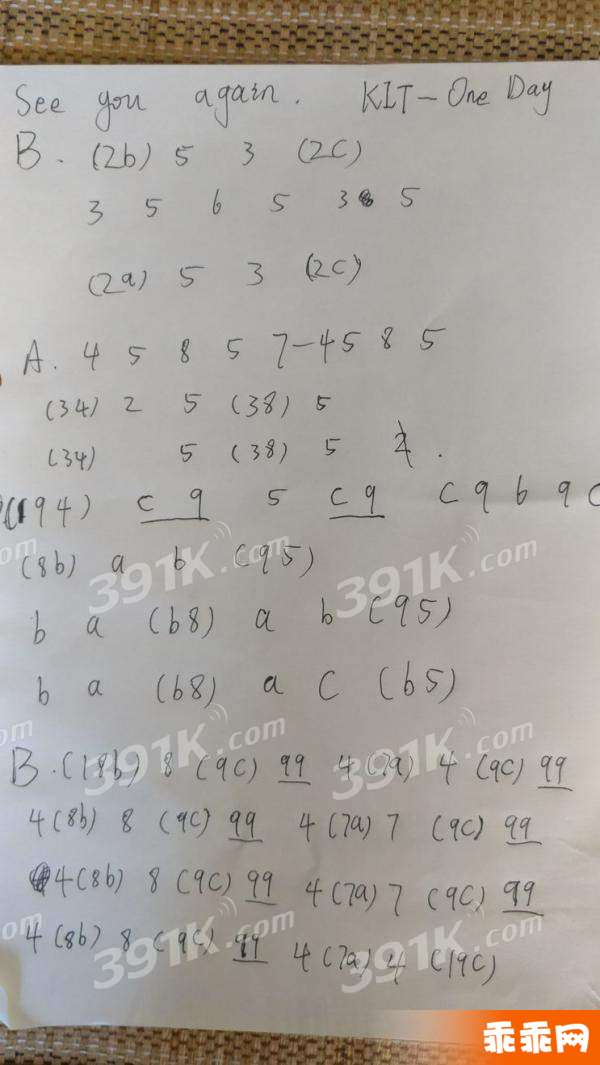 See you again. KIT-One Day
B. (2b) 5 3 (2C)
3 5 6 5 3 5
(2a) 5 3 (2C)
A. 4 5 8 5 7-45 8 5
(34) 2 5 (38) 5
(34) 5 (38) 5
(194) c 9 5 c 9 c 9 b 9 c
(8b) a b (95)
b a (b8) a b (95)
b a (b8) a C (b5)
B.(18b) 8 (9C) 99 4(7a) 4 (9C) 99
4(8b) 8 (9C) 99 4(7a) 7 (9C) 99
4(8b) 8 (9C) 99 4(7a) 7 (9C) 99
4(8b) 8 (9C) 99 4(7a) 4 (19C)
391K.com
391K.com
391K.com
391K.com
391K.com
391K.com
乖乖网